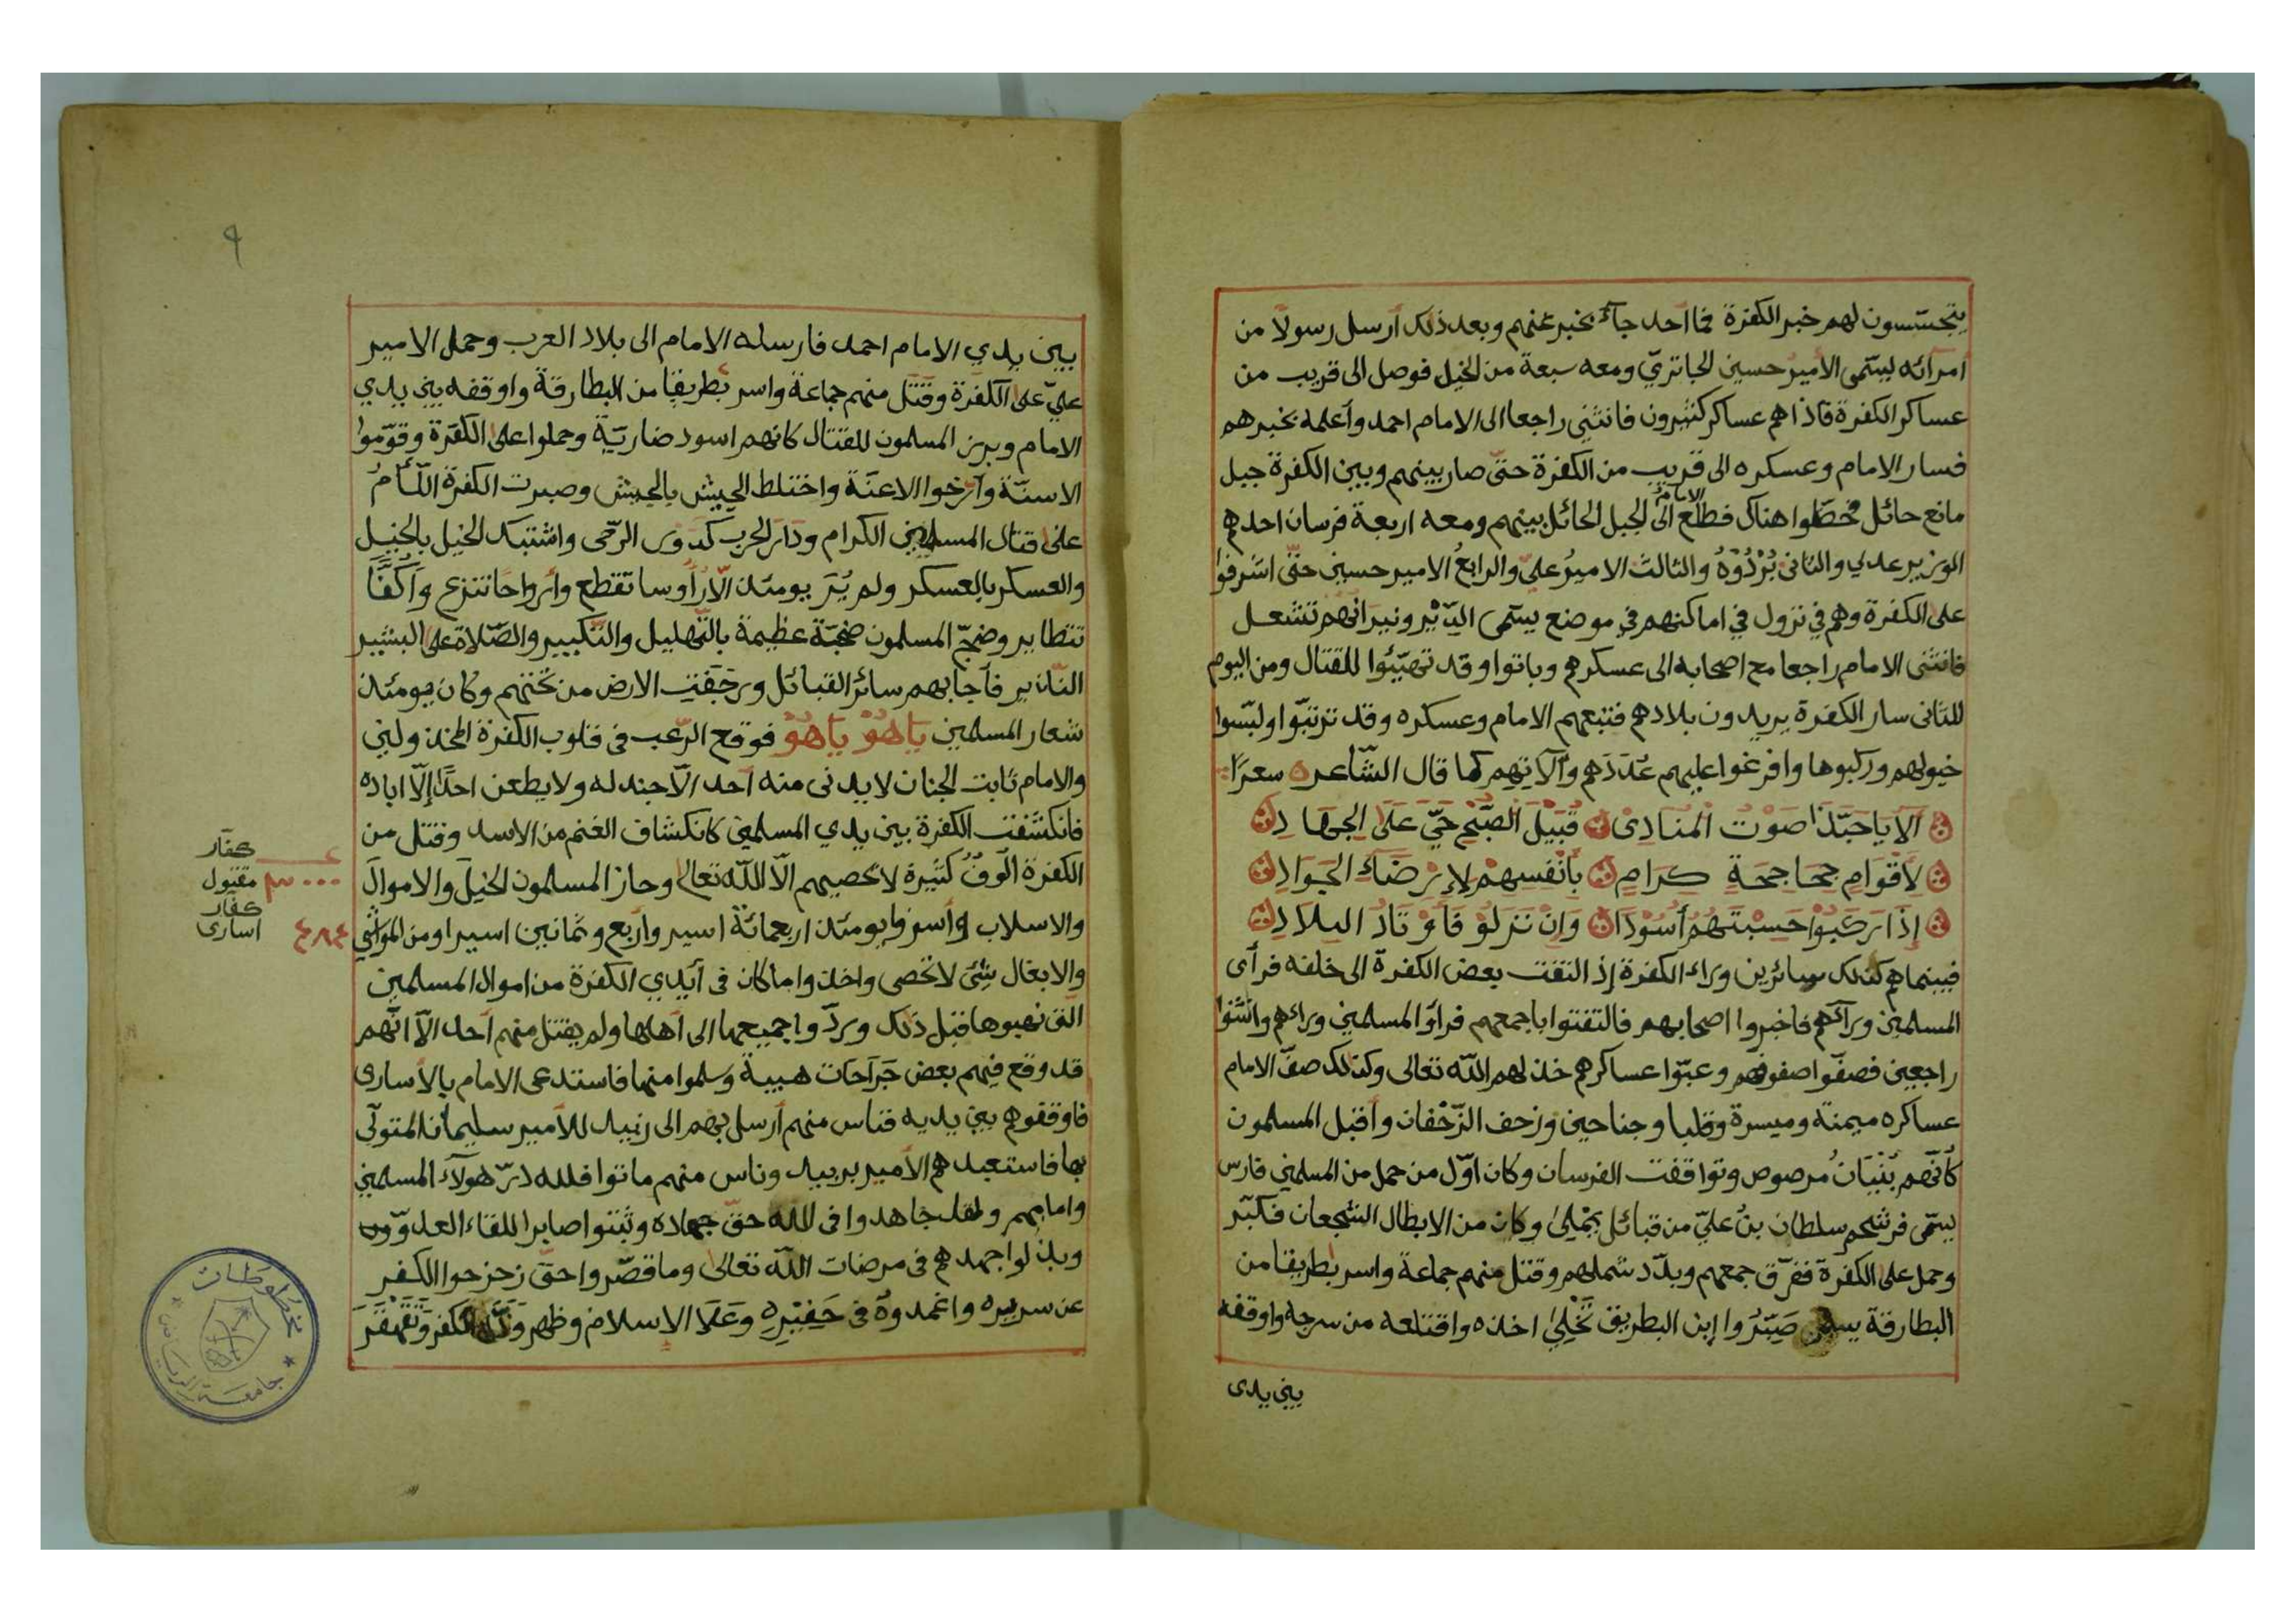 يتجسّسون لهم خبر الكفرة فما احد جآء بخبر عنهم وبعد ذلك أرسل رسولاً من
امرائه يسمّى الأمير حسين الجاتريّ ومعه سبعة من الخيل فوصل الى قريب من
عساكر الكفرة فاذا هم عساكر كثيرون فانثنى راجعا الى الامام احمد وأعلمه بخبرهم
فسار الامام وعسكره الى قريب من الكفرة حتىّ صار بينهم وبين الكفرة جبل
مانع حائل فحطّوا هناك فطلع الامام الى الجبل الحائل بينهم ومعه اربعة فرسان احدهم
الوزير عدلي والثاني بُرْدُوَهْ والثالث الاميرُ عليّ والرابعُ الامير حسين حتىّ اشرفوا
على الكفرة وهم في نزول في اماكنهم في موضع يسمّى اليَدْبْر ونيرانهم تشعل
فانثنى الامام راجعا مع اصحابه الى عسكرهم وباتوا وقد تهيّئوا للقتال ومن اليوم
الثاني سار الكفرة يريدون بلادهم فتبعهم الامام وعسكره وقد ترتبّوا ولبّسوا
خيولهم وركبوها وافرغوا عليهم عُدَدَهم وآلاتهم كما قال الشّاعر سعرًا
اَلاَ يَاحَبَّذَا صَوْتُ الْمُنَادِىْ قُبَيْلَ الصُّبْحِ حَيَّ عَلَى الجِهَادِ
لِأَقْوَامٍ جَحَاجِحَةٍ كِرَامٍ بِأَنْفُسِهِمْ لِإِرْضَاءِ الجَوَادِ
إِذَا رَكِبُوْا حَسِبْتَهُمْ أُسُوْدَا وَاِنْ نَزَلُوْ فَأَوْتَادُ البِلاَدِ
فبينما هم كذلك سائرين وراء الكفرة إذ التفت بعض الكفرة الى خلفه فرأى
المسلمين ورآءهم فاخبروا اصحابهم فالتفتوا باجمعهم فرأوا المسلمين وراءهم وانثنوا
راجعين فصفّوا صفوفهم وعبّوا عساكرهم خذلهم اللّه تعالى وكذلك صفّ الامام
عساكره ميمنة وميسرة وقلبا وجناحين وزحف الزّحفان وأقبل المسلمون
كأنّهم بُنْيَانٌ مرصوص وتواقفت الفرسان وكان اوّل من حمل من المسلمين فارس
يسمّى فرشحم سلطان بنُ عليّ من قبائل يحْلىٰ وكان من الابطال الشجعان فكبّر
وحمل على الكفرة ففرّق جمعهم وبدّد شملهم وقتل منهم جماعة واسر بطريقا من
البطارقة يسمى صَبْرُوا إبن البطريق تَخْلِىٰ اخذه واقتلعه من سرجه واوقفه
بين يدى
٩
بين يدي الامام احمد فارسله الامام الى بلاد العرب وحمل الامير
عليّ على الكفرة وقتل منهم جماعة واسر بطريقا من البطارقة واوقفه بين يدي
الامام وبرز المسلمون للقتال كانهم اسود ضاريّة وحملوا على الكفرة وقوّموا
الاسنّة وأرخوا الاعنّة واختلط الجيش بالجيش وصبرت الكفرة اللّئامُ
على قتال المسلمين الكرام ودارَ الحرب كدَوْر الرّحى واشتبك الخيل بالخيل
والعسكر بالعسكر ولم يُرَ يومئذ الّا رأوسا تقطع وأرواحًا تنزع وأكُفًّا
تتطاير وضجّ المسلمون ضجّة عظيمة بالتّهليل والتّكبير والصّلاة على البشير
النّذير فأجابهم سائر القبائل ورجفت الارض من تحتهم وكان يومئذ
شعار المسلمين يَاهُوْ يَاهُوْ فوقع الرّعب في قلوب الكفرة المخذولين
والامام ثابت الجنان لا يدنى منه أحد الّا جندله ولا يطعن احدًا إلّا اباده
فانكشفت الكفرة بين يدي المسلمين كانكشاف الغنم من الاسد وقتل من
الكفرة اُلُوفٌ كثيرة لا يحصيهم الّا اللّه تعالى وحاز المسلمون الخيلَ والاموالَ
والاسلاب وأسروا يومئذ اربعمائة اسير واربع وثمانين اسيرا ومن المواشى
والابغال شئ لا تحصى واخذوا ما كان في أيدي الكفرة من اموال المسلمين
التى نهبوها قبل ذلك وردّوا جميعها الى أهلها ولم يقتل منهم أحد الّا انّهم
قد وقع فيهم بعض جَرَاحَات هيبة وسلموا منها فاستدعى الامام بالأسارى
فاوقفوهم بين يديه فناس منهم أرسل بهم الى زبيد للأمير سليمان المتولّى
بها فاستعبدهم الأمير بزبيد وناس منهم ماتوا فلله درّ هولآء المسلمين
وامامهم ولقد جاهدوا في اللّه حقّ جهاده وثبتوا صابرا للقاء العدوّ
وبذلوا جهدهم في مرضات اللّه تعالى وما قصّروا حتى زحزحوا الكفر
عن سريره واغمدوهُ في حَفِيْرِهِ وَعَلاَ الاسلام وظهر وَذَلَّ الكفر وَتَقَهْقَرَ
كفّار
مقتول ٣٠٠٠
كفّار
اسارى ٤٨٤
مخطوطات
جامعة الرياض